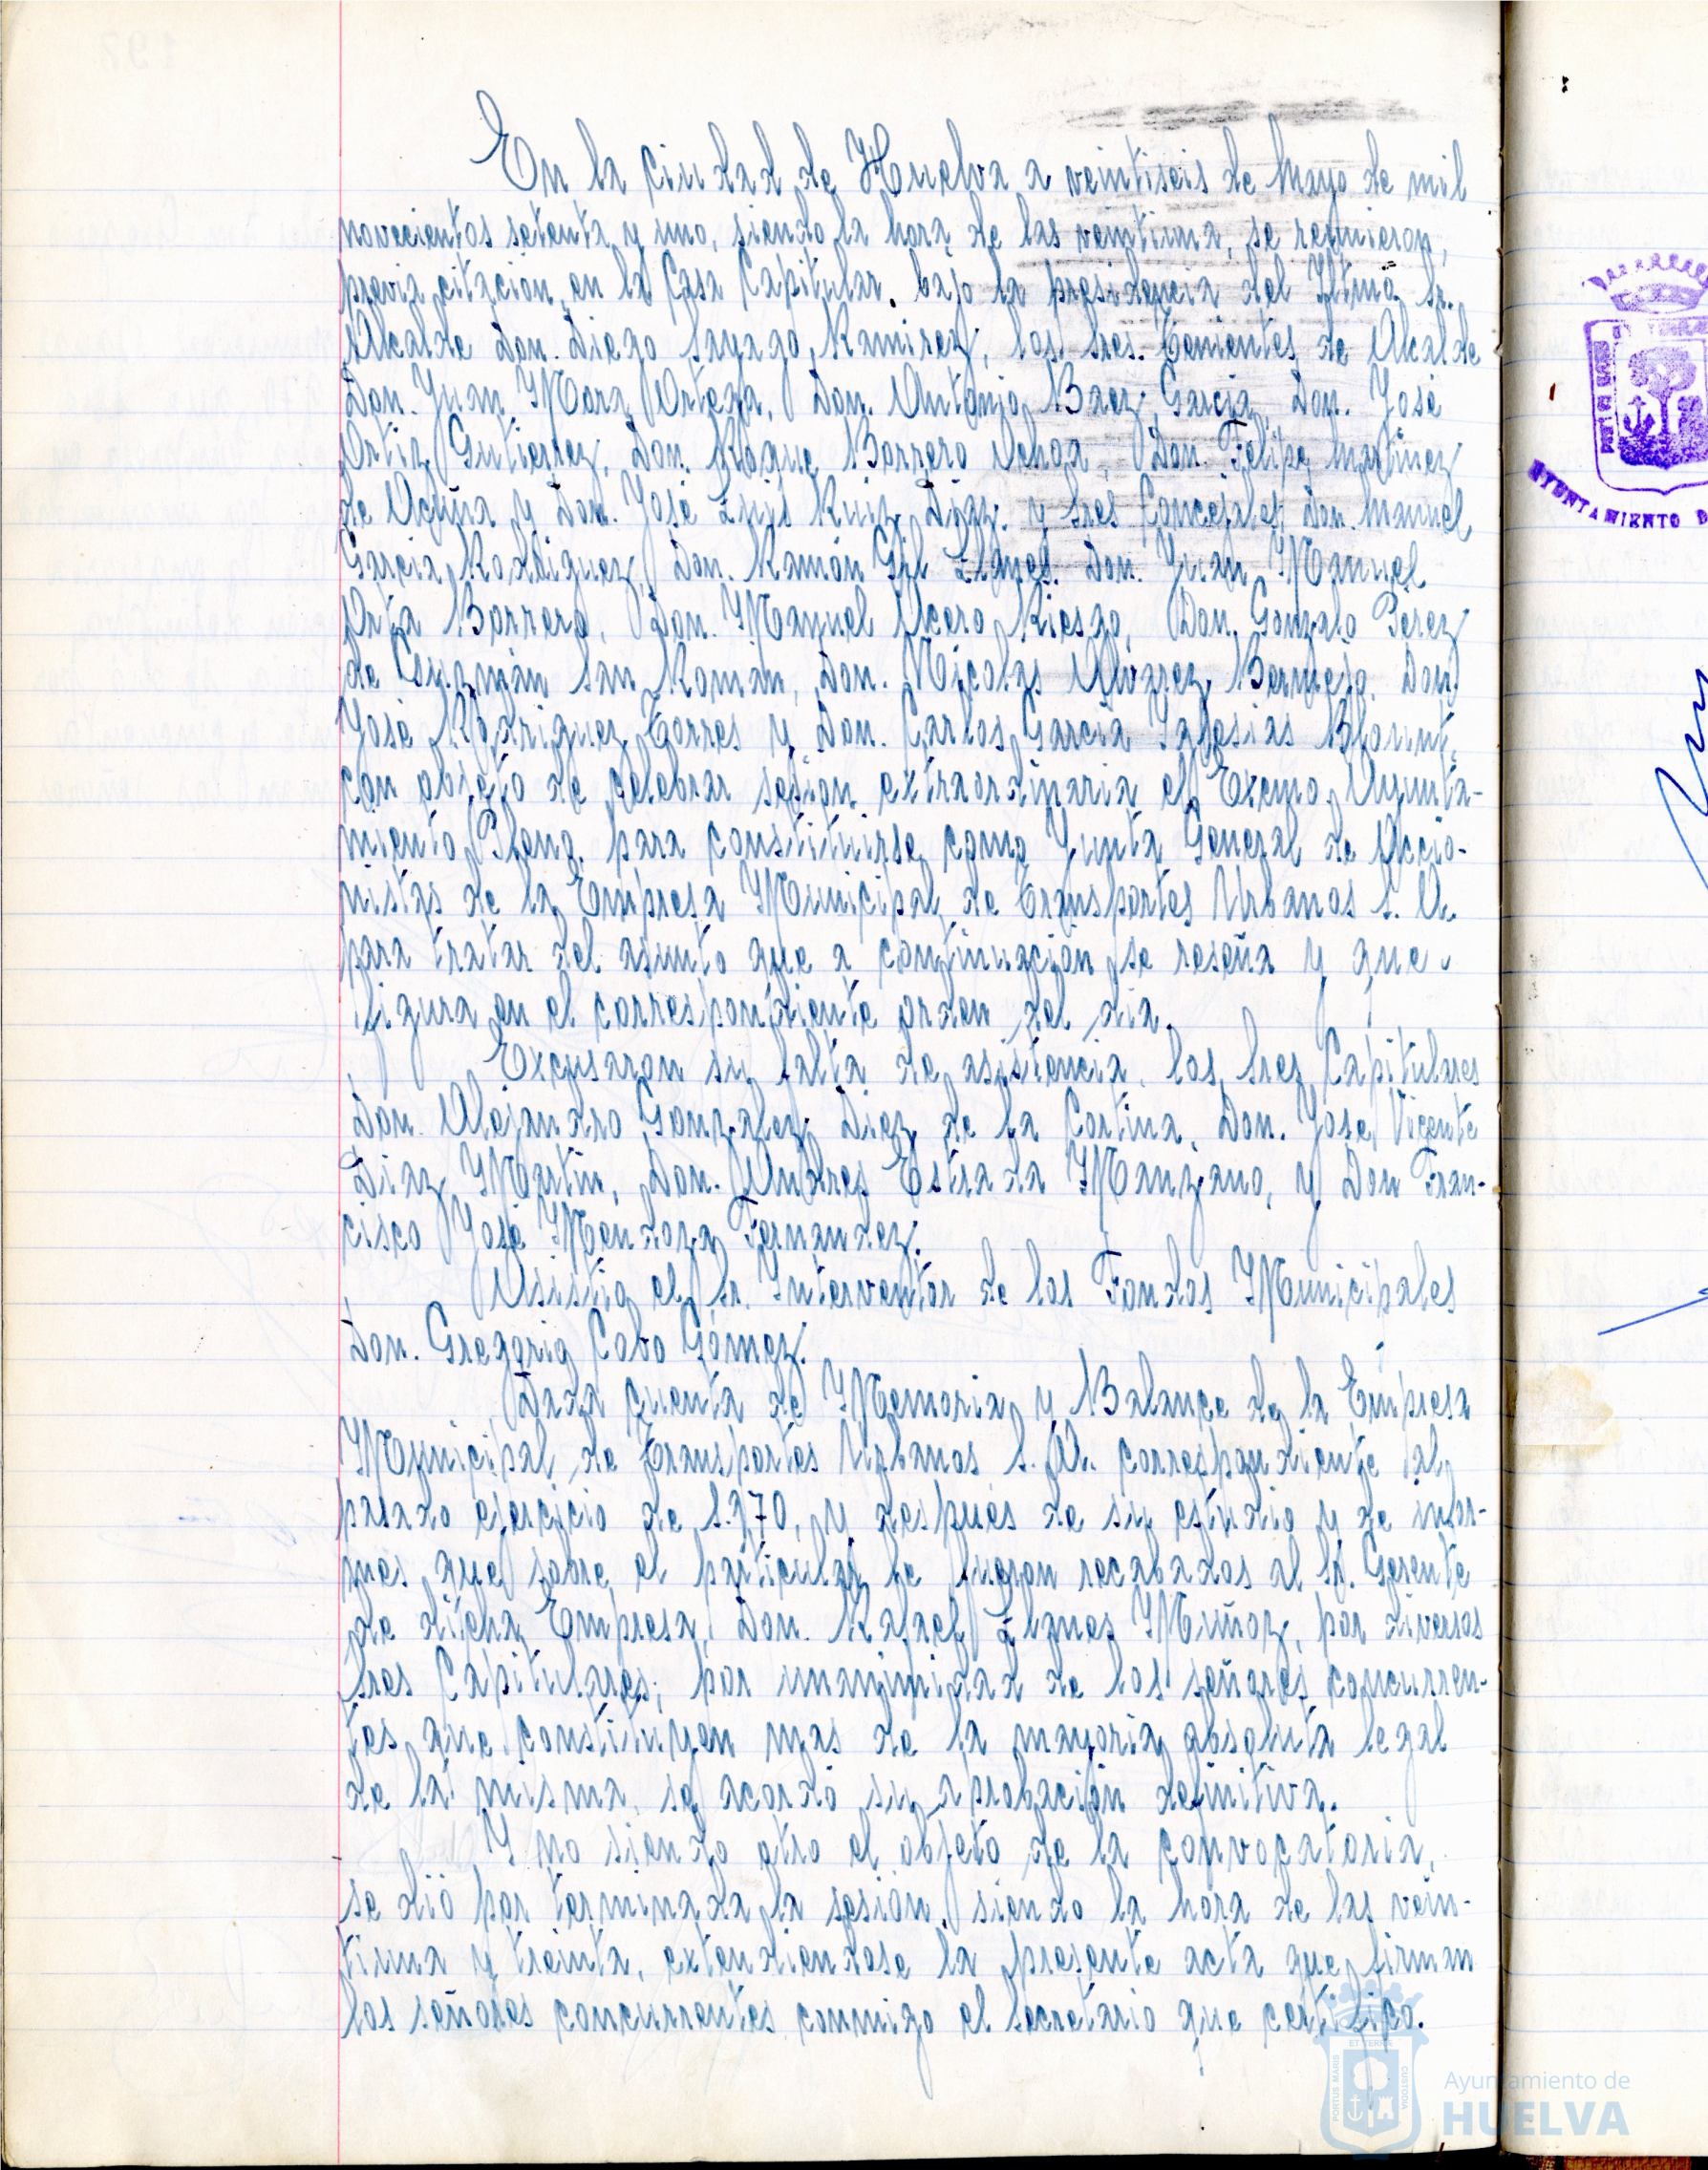 En la ciudad de Huelva a veintiseis de Mayo de mil
novecientos setenta y uno, siendo la hora de las veintiuna, se reunieron,
previa citación, en la Casa Capitular, bajo la presidencia del Iltmo. Sr.
Alcalde Don. Diego Sayago Ramirez, los Sres. Tenientes de Alcalde
Don. Juan Mora Ortega, Don. Antonio Baez Garcia, Don. José
Ortiz Gutierrez, Don. Roque Barrero Ochoa, Don. Felipe Martinez
de Acuña y Don. José Luis Ruiz Diaz. y Sres Concejales, Don. Manuel
Garcia Rodriguez, Don. Ramón Gil Llanes. Don. Juan Manuel
Orta Borrero, Don. Manuel Acero Riesgo, Don. Gonzalo Pérez
de Guzmán San Román, Don. Nicolas Alvarez Bermejo. Don
José Rodriguez Torres y Don. Carlos Garcia Iglesias
con objeto de celebrar sesión extraordinaria el Excmo. Ayunta-
miento Pleno. para constituirse como Junta General de Accio-
nistas de la Empresa Municipal de Transportes Urbanos S. A.
para tratar del asunto que a continuación se reseña y que
figura en el correspondiente orden del dia.
Excusaron su falta de asistencia, los Sres Capitulares
Don. Alejandro Gonzalez Diez de la Cortina, Don. José Vicente
Diaz Martin, Don. Andres Estrada Manzano, y Don Fran-
cisco José Mendoza Fernandez.
Asistio el Sr. Interventor de los Fondos Municipales
Don. Gregorio Cobo Gómez.
Dada cuenta de Memoria y Balance de la Empresa
Municipal de Transportes Urbanos S. A. correspondiente al
pasado ejercicio de 1.970, y después de su estudio y de infor-
mes que sobre el particular le fueron recabados al Sr. Gerente
de dicha Empresa, Don. Rafael Llanes Muñoz, por diversos
Sres Capitulares; por unanimidad de los señores concurren-
tes que constituyen mas de la mayoria absoluta legal
de la misma, se acordó su aprobación definitiva.
Y no siendo otro el objeto de la convocatoria,
se dió por terminada la sesión, siendo la hora de las vein-
tiuna y treinta, extendiendose la presente acta que firman
los señores concurrentes conmigo el Secretario que certifico.
AYUNTAMIENTO D
PORTUS MARIS
ET TERRÆ
CUSTODIA
Ayuntamiento de
HUELVA